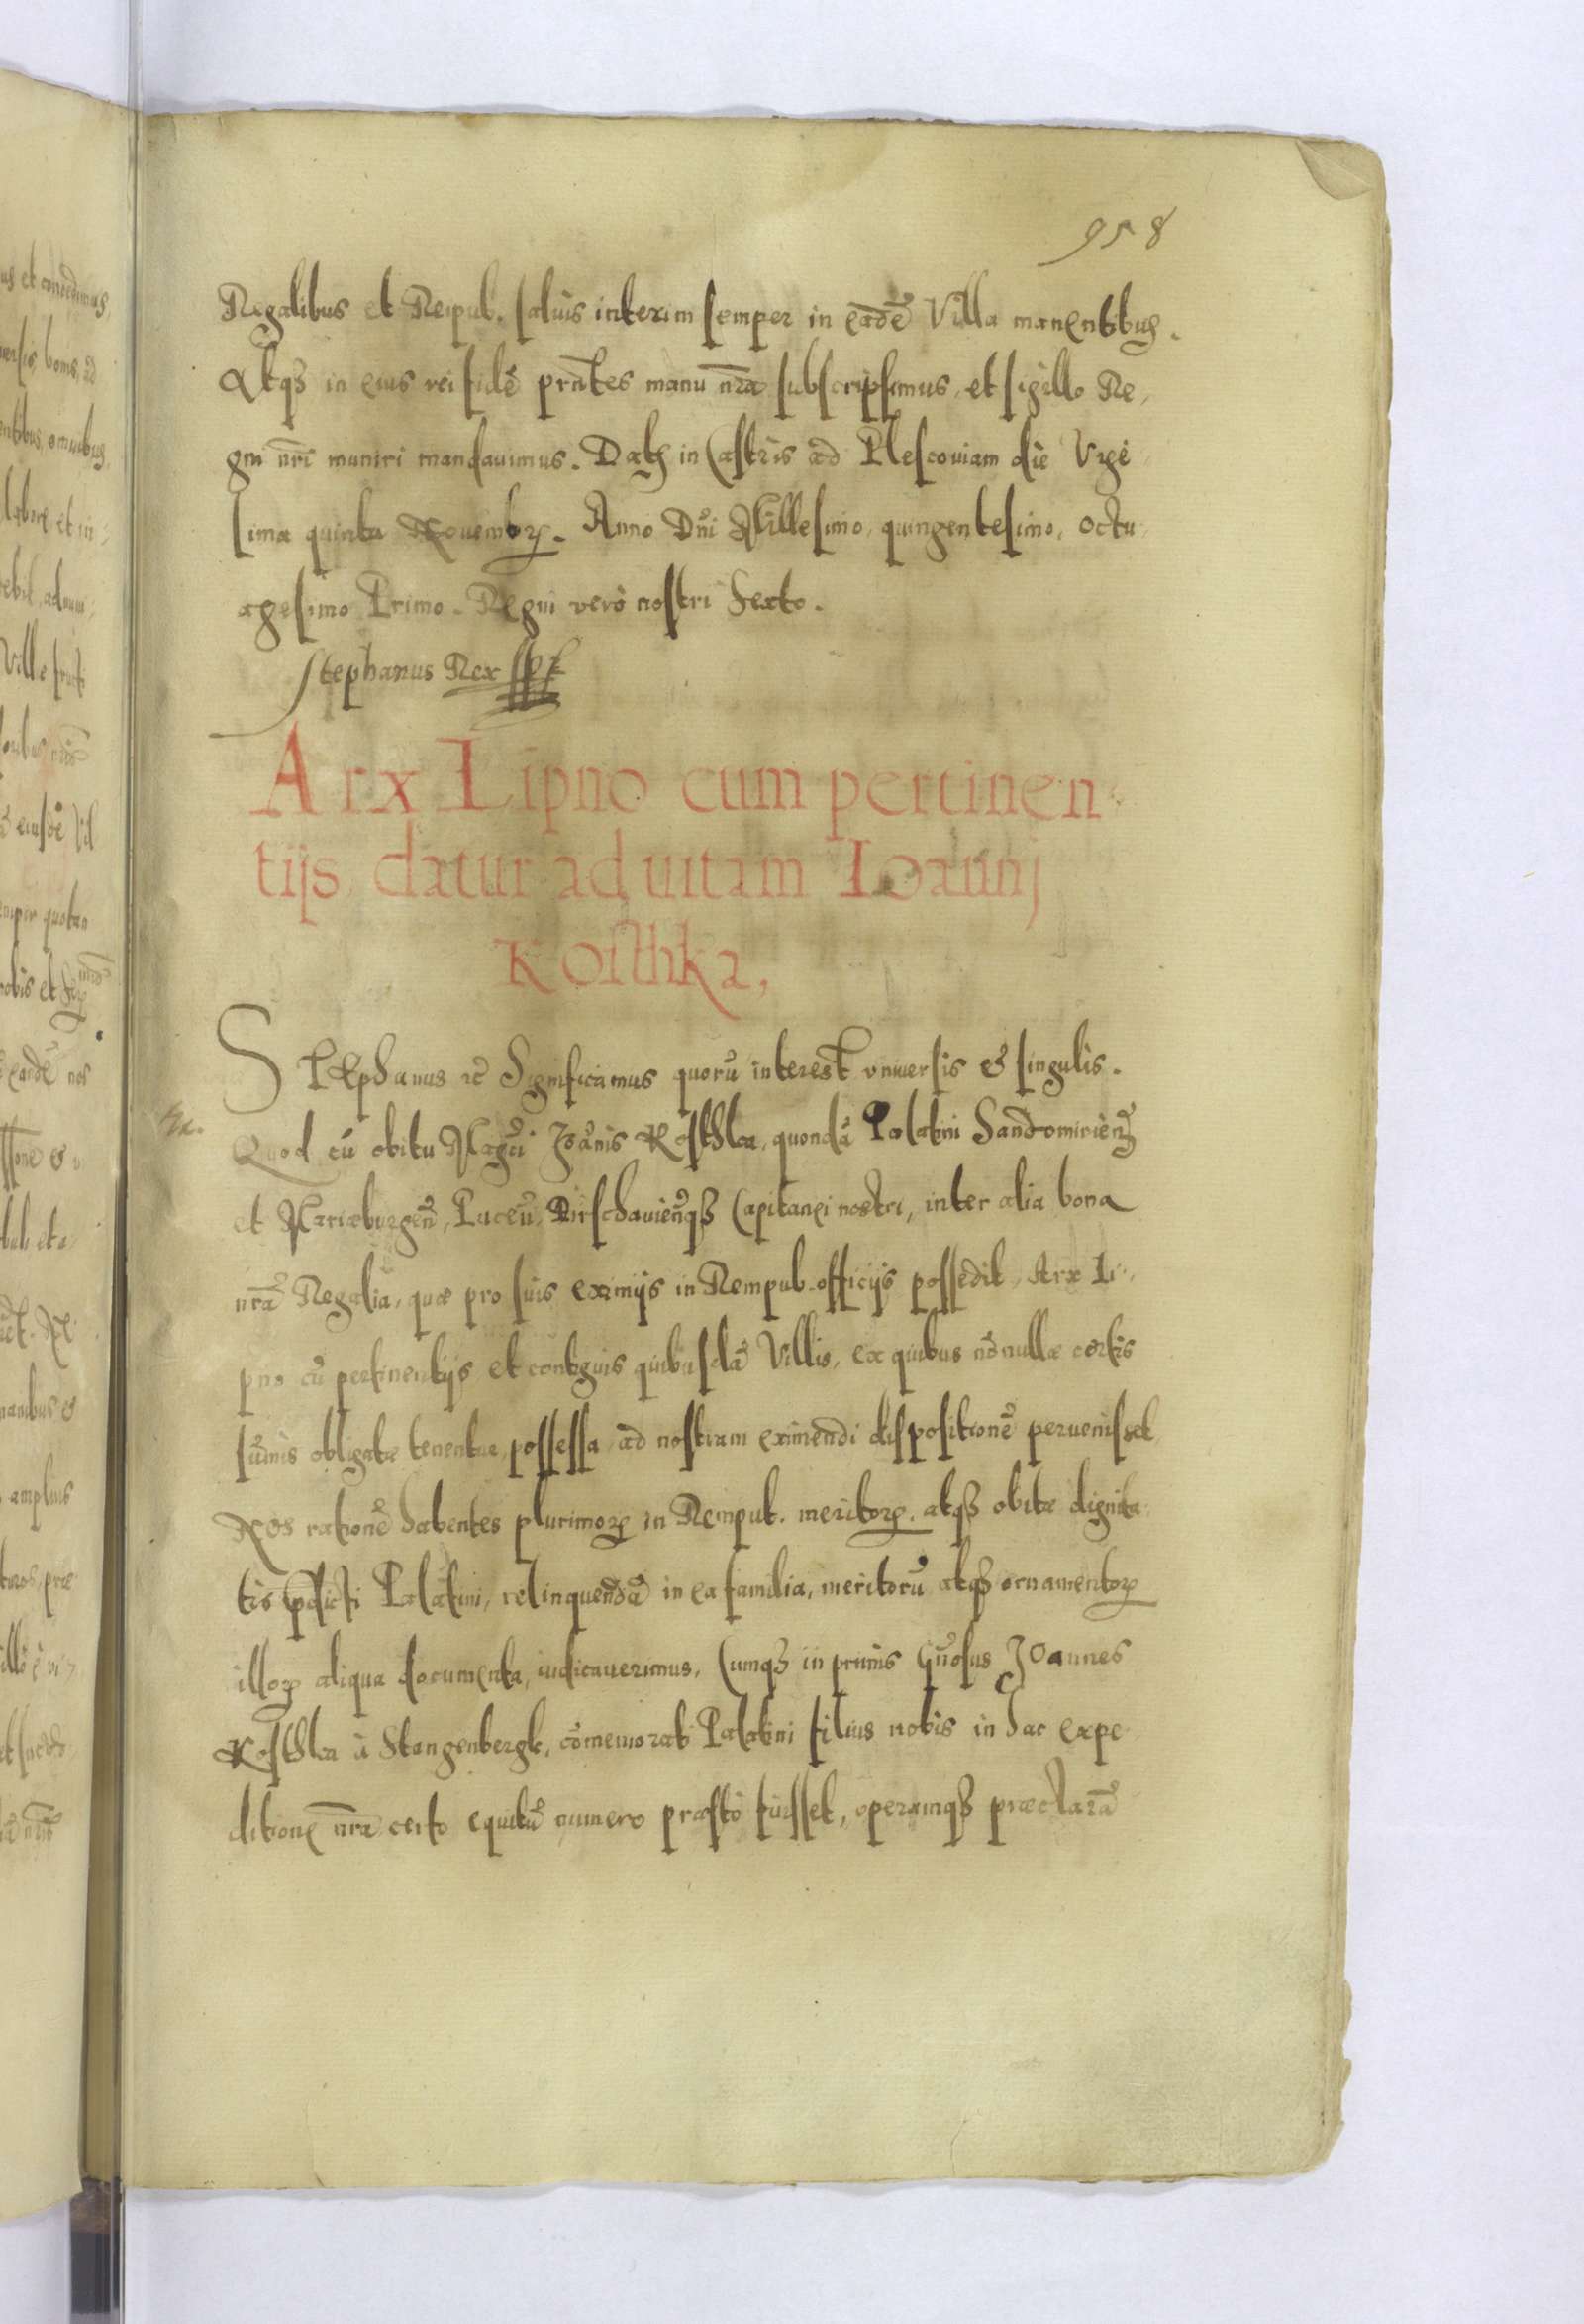 958
Regalibus et Reipub. saluis interim semper in eadē Villa manentibus.
Atqȝ in eius rei fidē pñtes manu nr̃a subscripsimus, et sigillo Re,
gni nr̃i muniri mandauimus. Datȝ in Castris ad Plescouiam die Vige
sima quinta Nouembrꝫ. Anno Dn̄i Millesimo, quingentesimo, octu
agesimo Primo. Regni vero nostri Sexto.
Stephanus Rex
Arx Lipno cum pertinen
tijs datur ad uitam Ioannj
Kosthka,
STEphanus ꝛc̃ Significamus quorū interest vniuersis & singulis.
Quod cū obitu Mag̃ci Joãnis Kosthka, quondā Palatini Sandomirieñ
et Marieburgeñ, Puceñ, Dirschauieñqȝ Capitanei nostri, inter alia bona
nr̃a Regalia, quæ pro suis eximijs in Rempub. officijs possedit, Arx Li
pno cū pertinentijs et contiguis quibusdā Villis, ex quibus nōnullæ certis
sūmis obligatæ tenentur, possessa ad nostram eximendi dispositionē peruenisset
Nos rationē habentes plurimorꝫ in Rempub. meritorꝫ, atqȝ obitæ dignita
tis p̃dicti Palatini, relinquendā in ea familia, meritorū atqȝ ornamentorꝫ
illorꝫ aliqua documenta, iudicauerimus, Cumqȝ in primis Gñosus Joannes
Kosthka à Stangenbergk, cōmemorati Palatini filius nobis in hac expe
ditione nr̃a certo equitū numero præsto fuisset, operamqȝ præclarā